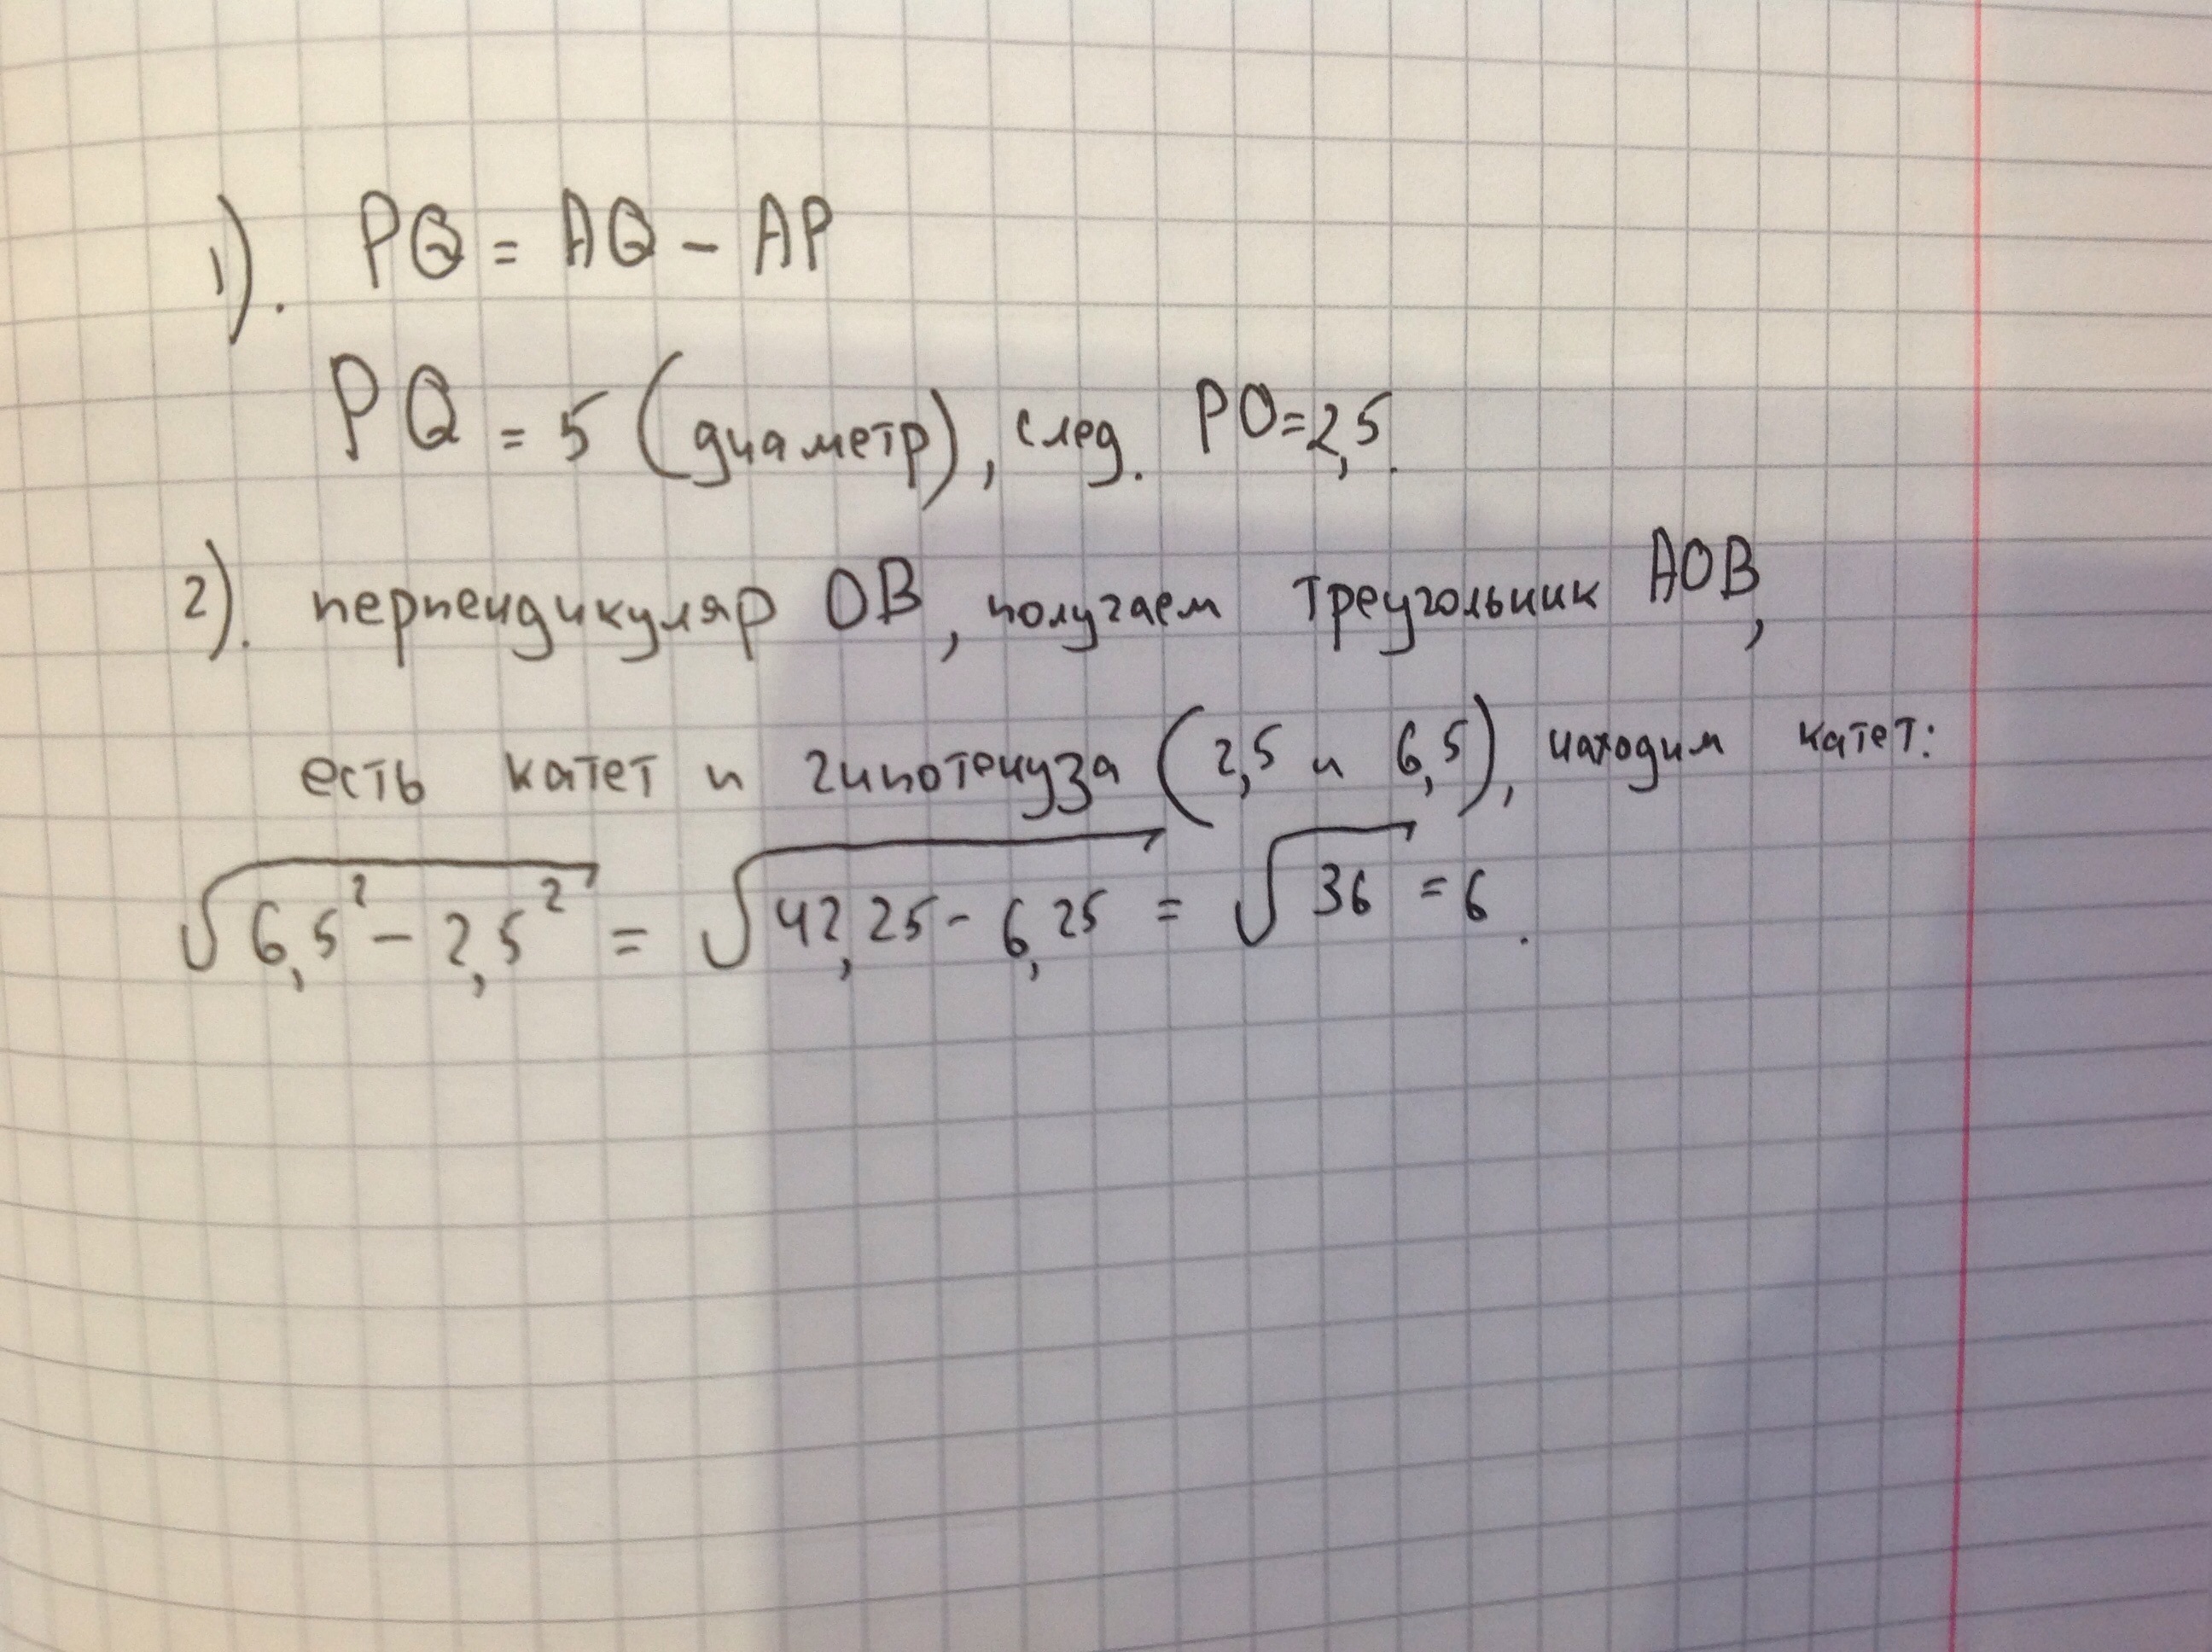 1). PQ = AQ - AP
PQ = 5 (диаметр), след. PO=2,5.
2). перпендикуляр OB, получаем треугольник AOB,
есть катет и гипотенуза (2,5 и 6,5), находим катет:
√6,5² - 2,5² = √42,25 - 6,25 = √36 = 6.